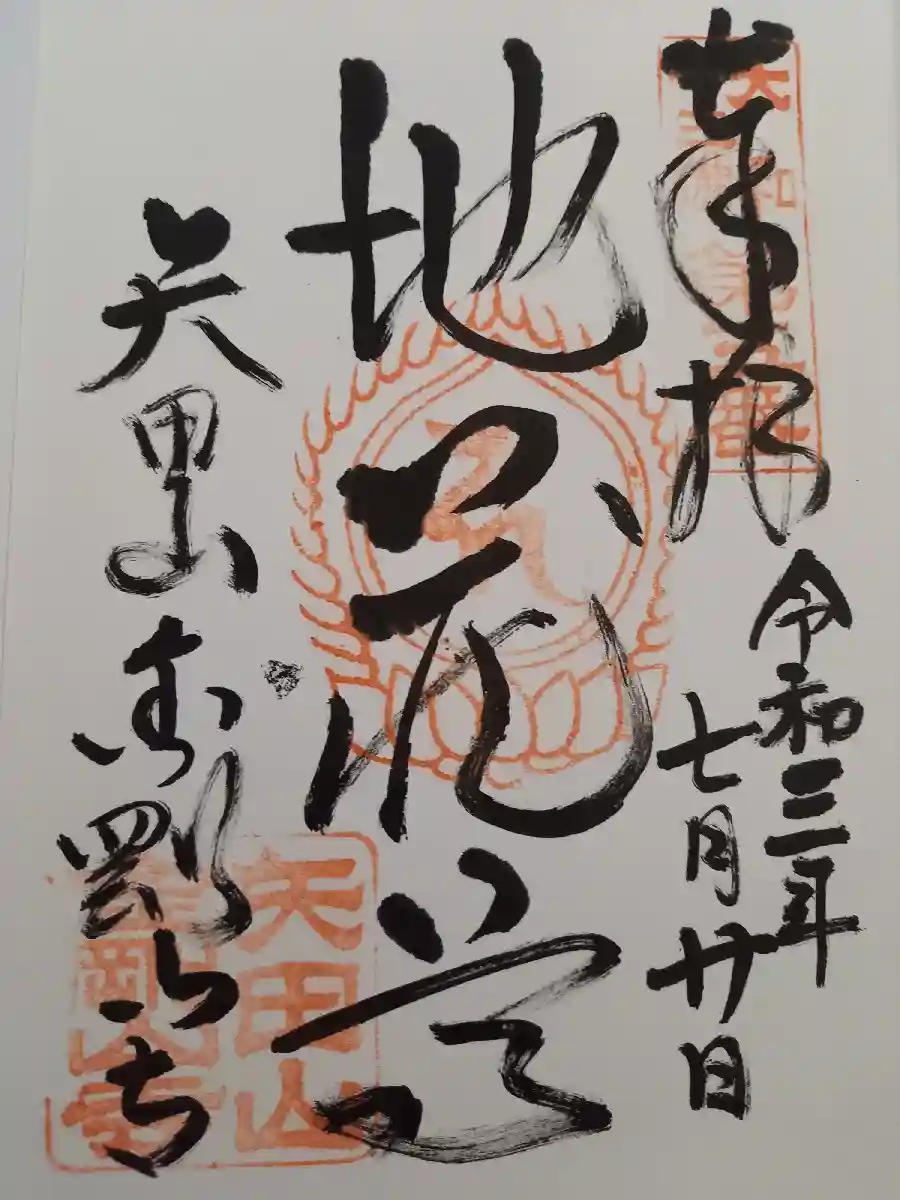 奉拝
令和三年
七月廿日
地蔵尊
矢田山金剛山寺
矢田山
金剛山寺